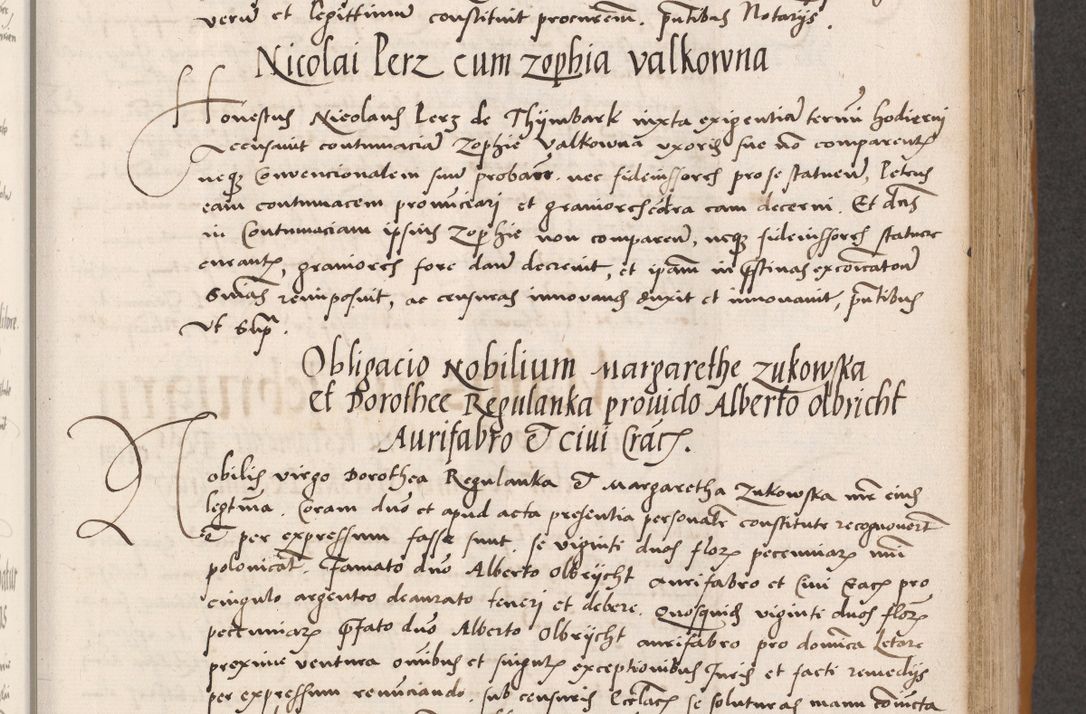 verum et legittimum constituit procurem. pntibus Notarijs.
Nicolai Perz cum zophia valkowna
Honestus Nicolaus Perz de Thijmbark iuxta exigentiam termi hodierni
Accusavit contumaciam Zophie Valkowna uxoris sue non comparentis
neque Convencionalem suum probant. nec fideiussores pro se statuen, Petens
eam contumacem pronunciari et graviores contra eam decerni. Et dns
in Contumaciam ipsius Zophie non comparen, neque fideiussores statuere
curantis, graviores fore dan decrevit, et ipam in pristinas excoicatois
Snias reimposuit, ac censuras innovand duxit et innovavit, pntibus
Vt Supra.
Obligacio Nobilium Margarethe Zukowska
et Dorothee Regulanka provido Alberto Olbricht
Aurifabro et civi Crac.
Nobilis virgo Dorothea Regulanka et Margaretha Zukowska mr eius
legtima. Coram dno et apud acta presentia personalr constitute recognoverunt
et per expressum fasse sunt. se viginti duos flor pecuniar mni
polonicat. Famato dno Alberto Olbrijcht aurifabro et Civi Crac pro
cingulo argenteo deaurato teneri et debere. Quosquid viginti duos flor
pecuniar prefato dno Alberto Olbrijcht aurifabro pro domica Letare
proxime ventura omibus et singulis exceptionibus Juris et facti remedijs
per expressum renunciando. sub censuris Eccliac se soluturas manu coniuncta